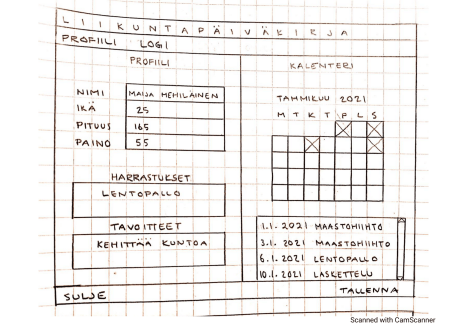 LIIKUNTAPÄIVÄKIRJA
PROFIILI LOGI
PROFIILI
NIMI MAIJA MEHILÄINEN
IKÄ 25
PITUUS 165
PAINO 55
HARRASTUKSET
LENTOPALLO
TAVOITTEET
KEHITTÄÄ KUNTOA
KALENTERI
TAMMIKUU 2021
M T K T P L S
1.1. 2021 MAASTOHIIHTO
3.1. 2021 MAASTOHIIHTO
6.1. 2021 LENTOPALLO
10.1. 2021 LASKETTELU
SULJE TALLENNA
Scanned with CamScanner